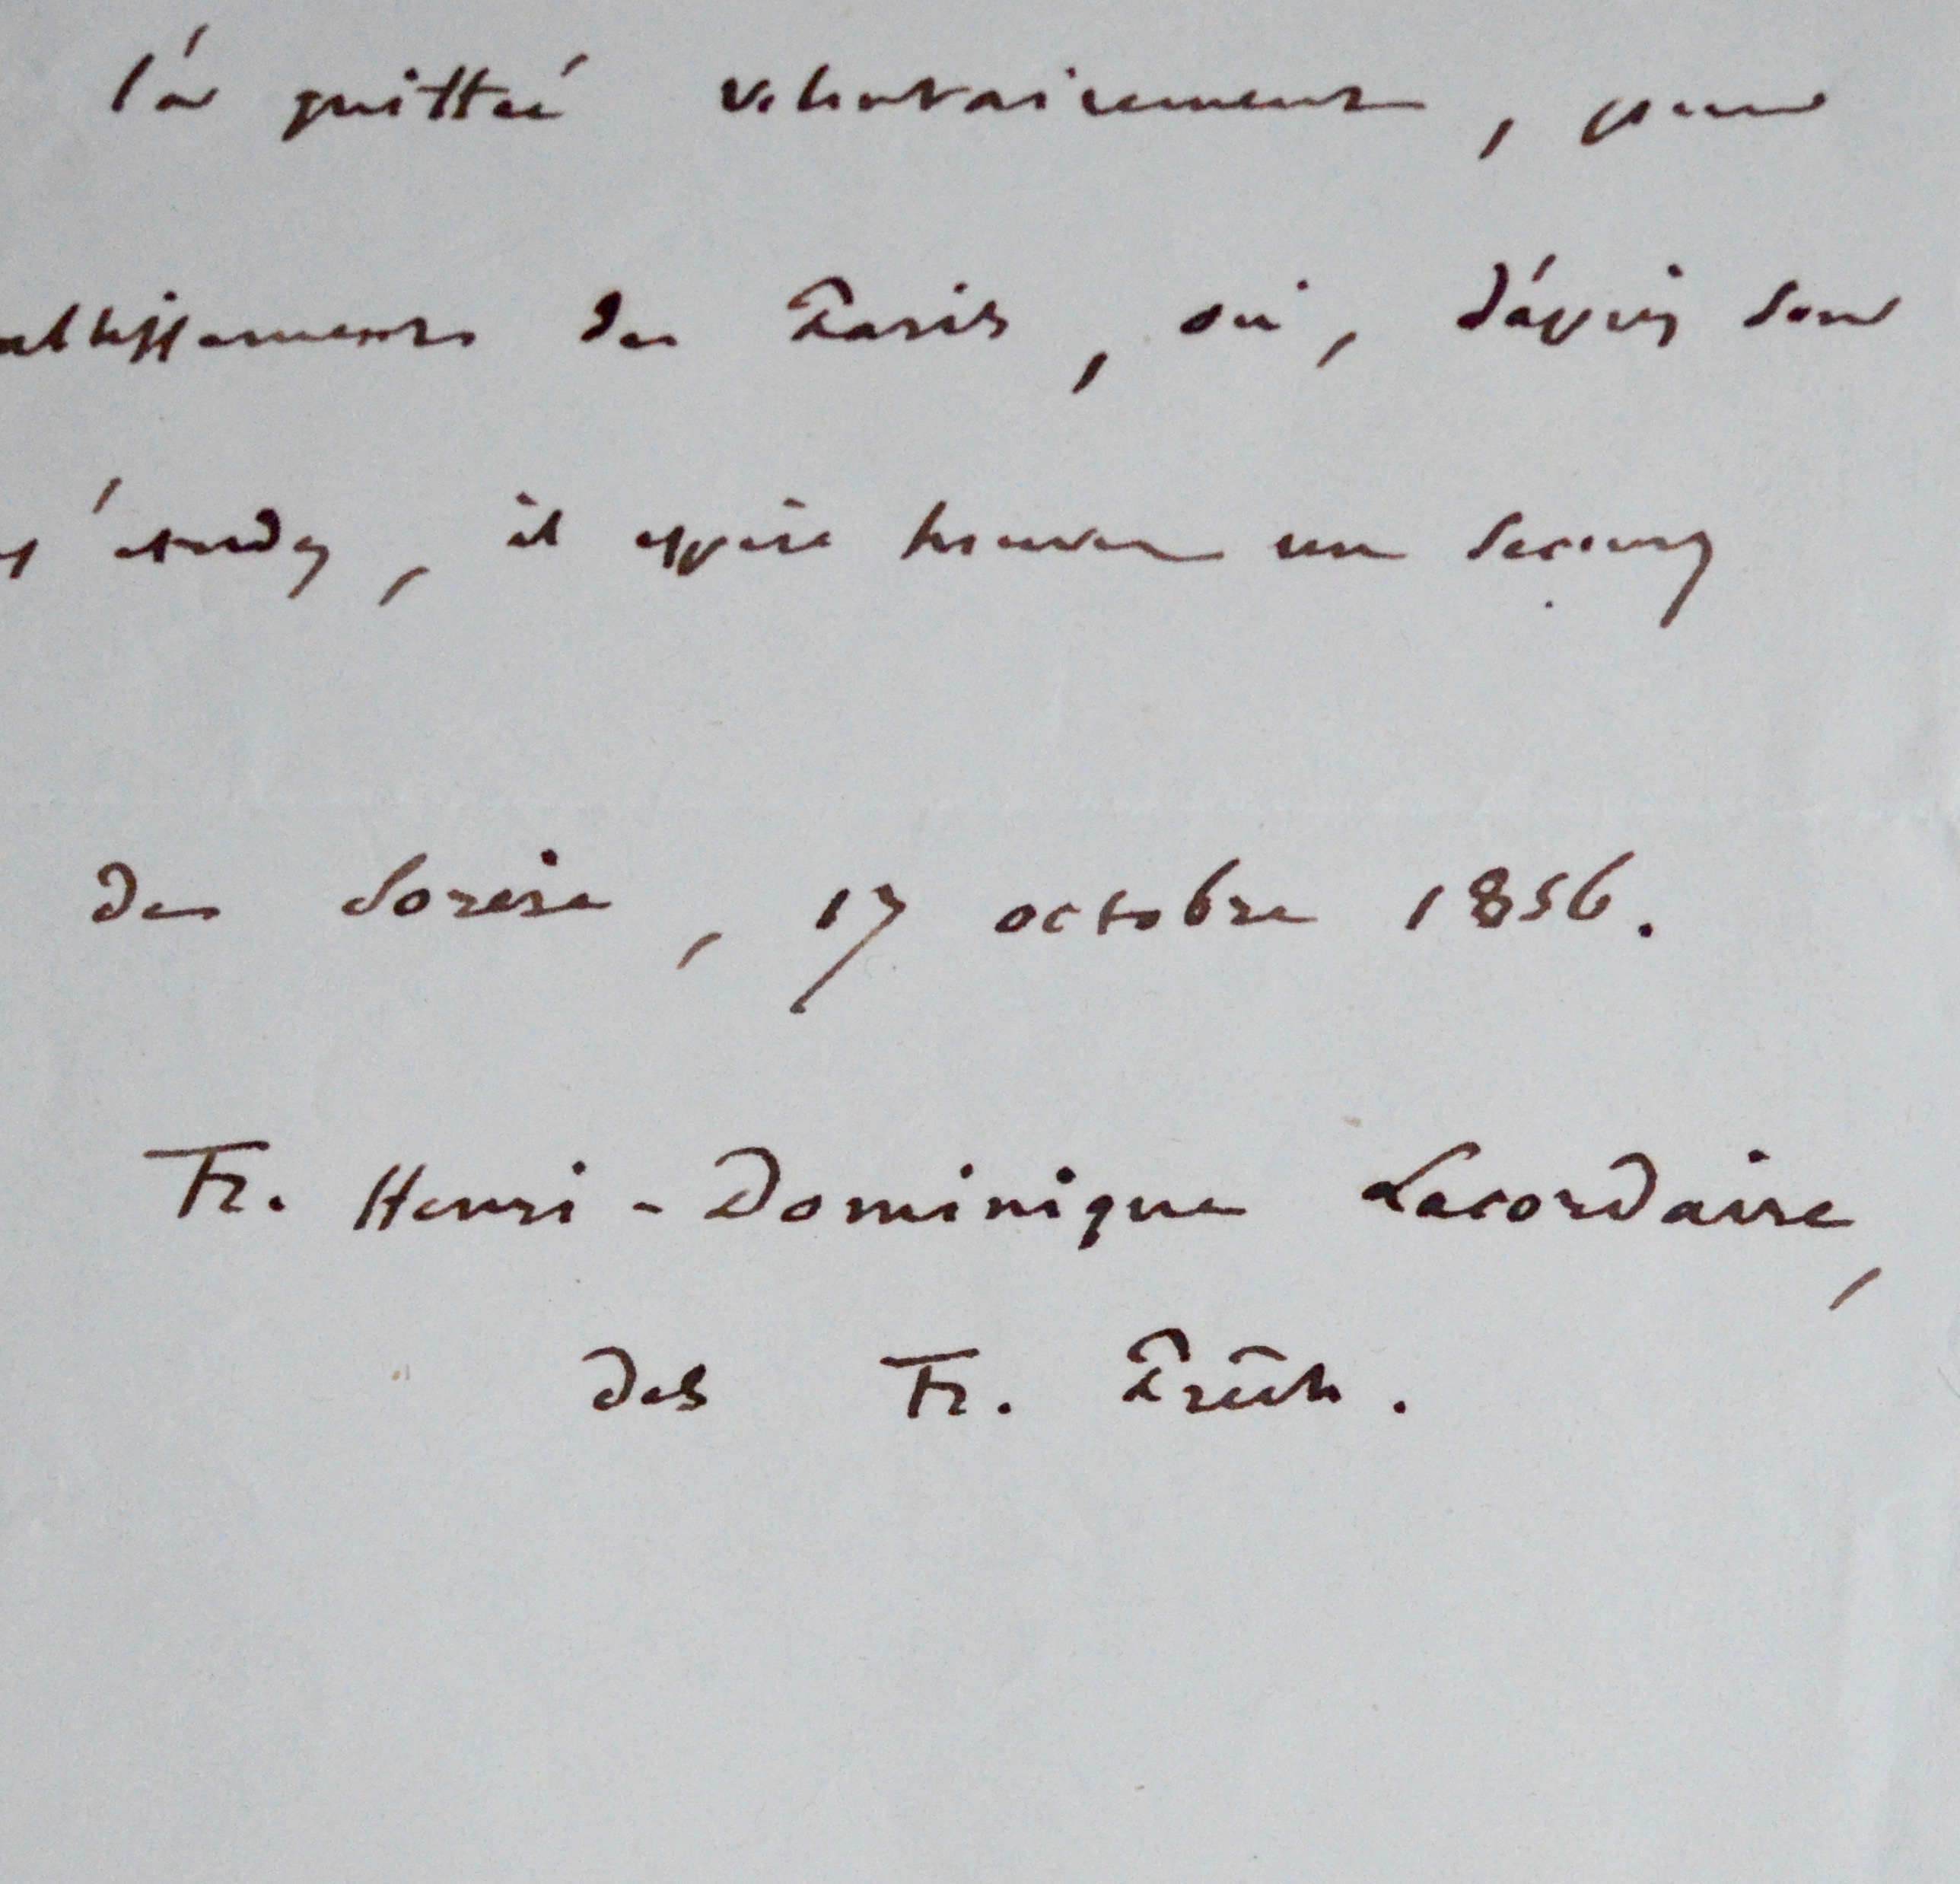 l'a quitté volontairement, pour
de Paris, où, d'après son
études, il espère trouver un secours
de Sorèze, 17 octobre 1856.
Fr. Henri-Dominique Lacordaire,
des Fr. Prêch.